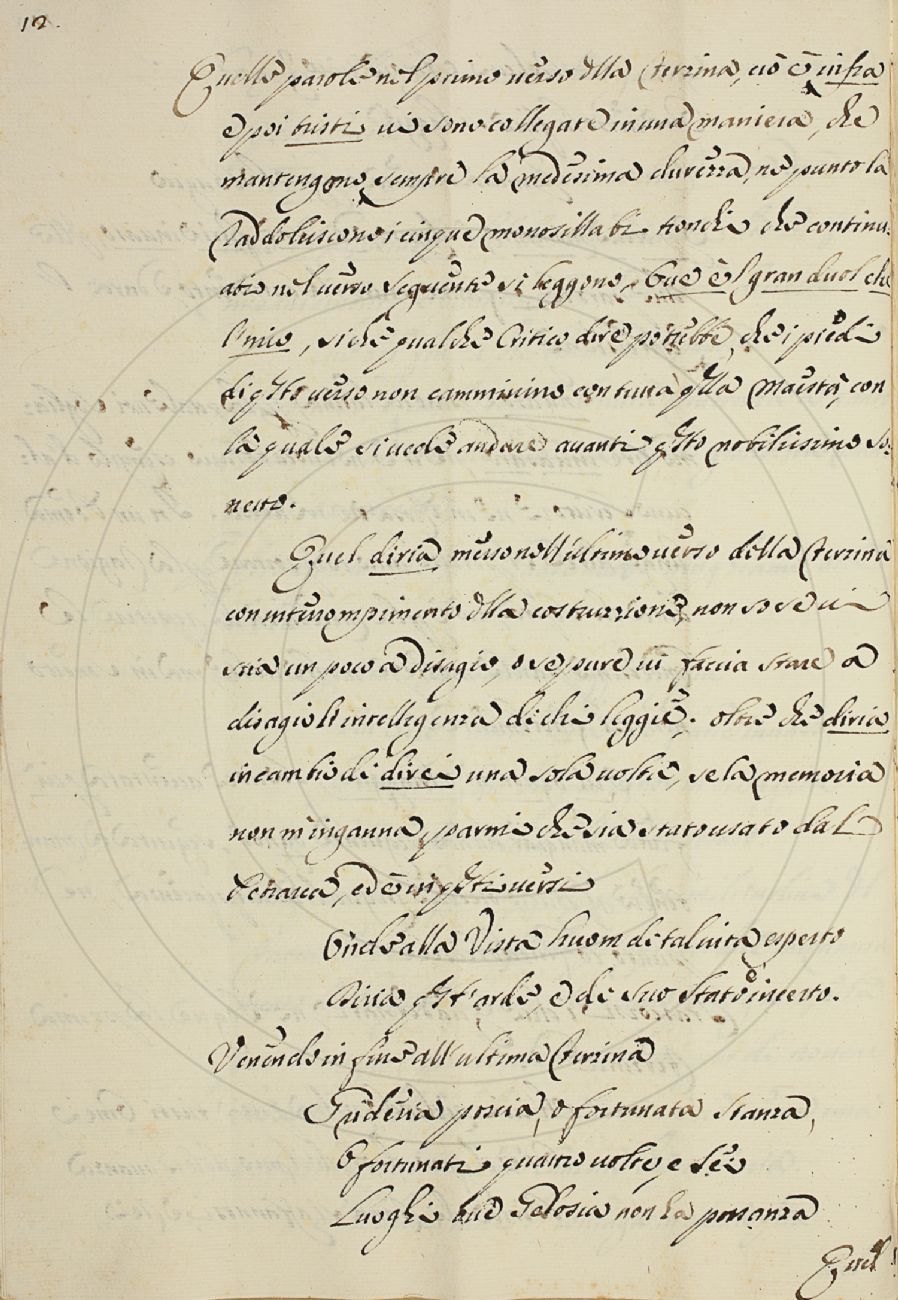 12.
Quelle parole nel primo verso dlla Terzina, ciò è infra
e poi tristi vi sono collegate in una maniera, che
mantengono sempre la medesima durezza, ne punto la
Raddolciscono i cinque monosillabi tronchi che continu-
ati nel verso seguente si leggono, ove è 'l gran duol che
'l mio, siche qualche Critico dire potrebbe, che i piedi
di qsto verso non camminino con tutta qlla Maestà, con
la quale si vede andare avanti qsto nobilissimo So-
netto.
Quel diria messo nell'ultimo verso della Terzina
con interrompimento dlla costruzzione, non so se vi
stia un poco a disagio, o se pure vi faccia stare a
disagio l'intelligenza di chi legge. oltre che diria
in cambio di direi una sola volta, se la memoria
non m'inganna, parmi che sia stato usato dal
Petrarca, ed è in qsti versi
Onde alla Vista huom di tal vita esperto
Diria qst' arde, e di suo Stato è incerto.
Venendo in fine all'ultima Terzina
Guderia poscia, o fortunata stanza,
O fortunati quattro volte, e sei
Luoghi ove Gelosia non ha possanza
Quel